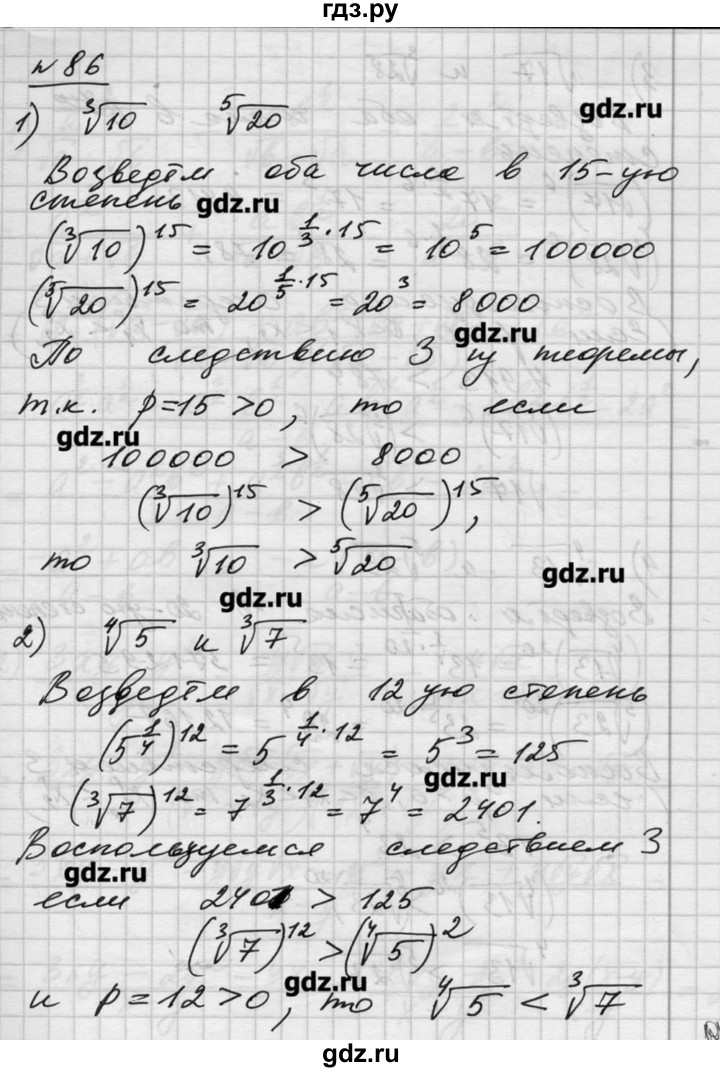 гдз.ру
№86
1) ∛10 ⁵√20
gdz.ru
Возведём оба числа в 15-ую
степень gdz.ru
(∛10)¹⁵ = 10^(1/3·15) = 10⁵ = 100000
(⁵√20)¹⁵ = 20^(1/5·15) = 20³ = 8000
gdz.ru
По следствию 3 из теоремы,
т.к. p=15>0, то если
gdz.ru
100000 > 8000
(∛10)¹⁵ > (⁵√20)¹⁵,
то ∛10 > ⁵√20
gdz.ru
gdz.ru
2) ⁴√5 и ∛7
Возведём в 12ую степень
(5^(1/4))¹² = 5^(1/4·12) = 5³ = 125
gdz.ru
(∛7)¹² = 7^(1/3·12) = 7⁴ = 2401.
Воспользуемся следствием 3
gdz.ru
если 2401 > 125
(∛7)¹² > (⁴√5)²
gdz.ru
и p=12>0, то ⁴√5 < ∛7
gdz.ru